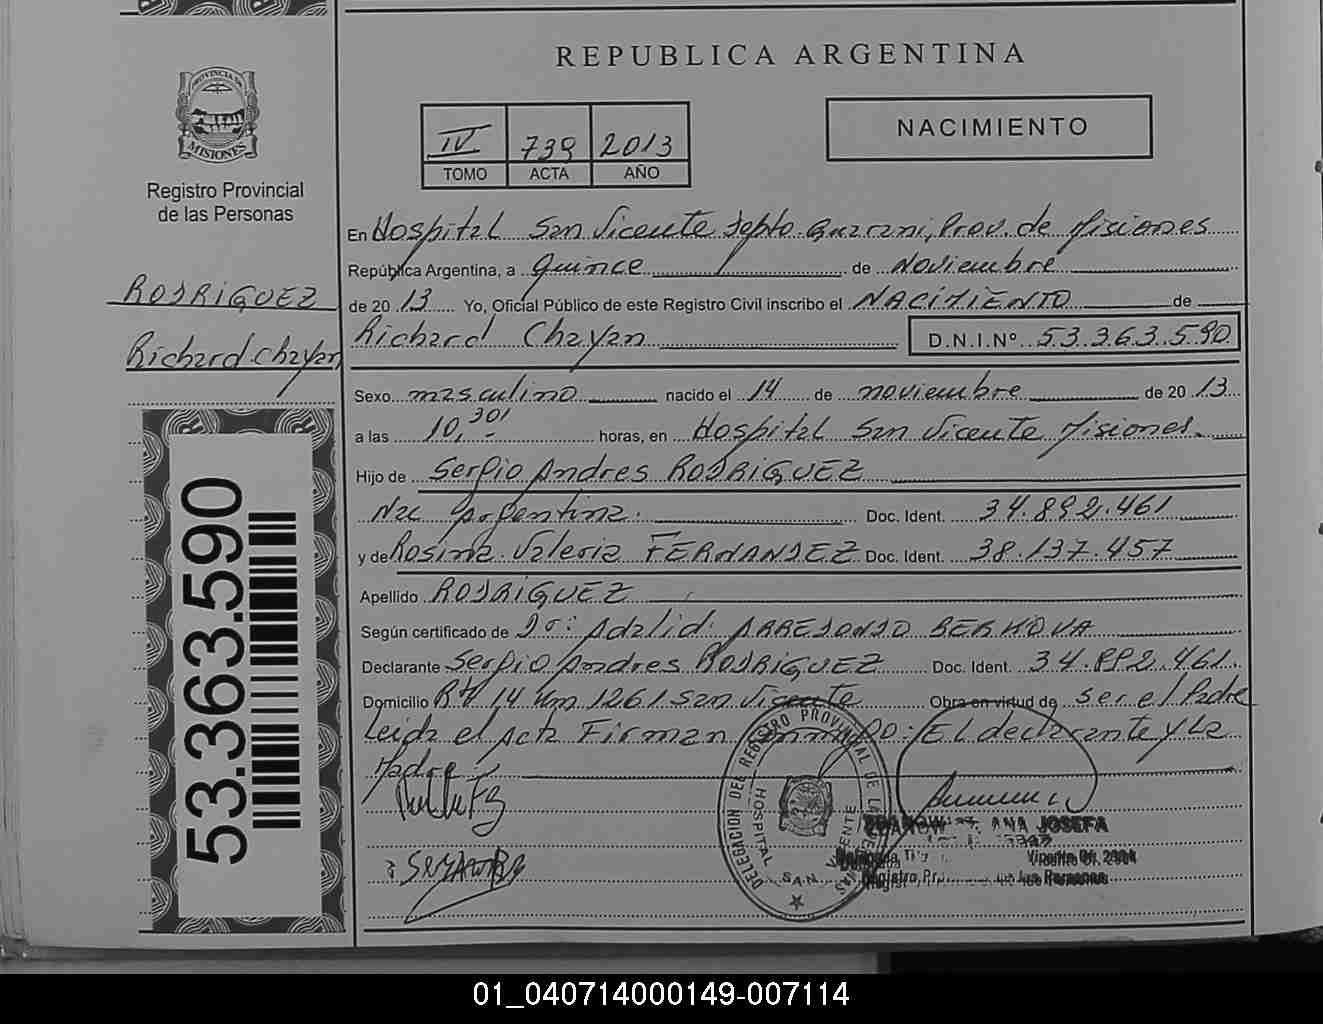 REPUBLICA ARGENTINA
PROVINCIA DE
MISIONES
Registro Provincial
de las Personas
IV 739 2013
TOMO ACTA AÑO
NACIMIENTO
RODRIGUEZ
Richard Chayan
53.363.590
En Hospital San Vicente Depto. Guarani, Prov. de Misiones
República Argentina, a Quince de Noviembre
de 2013 Yo, Oficial Público de este Registro Civil inscribo el NACIMIENTO de
Richard Chayan D.N.I.Nº 53.363.590
Sexo masculino nacido el 14 de noviembre de 2013
a las 10,30' horas, en Hospital San Vicente Misiones.
Hijo de Sergio Andres RODRIGUEZ
Nac Argentina. Doc. Ident. 34.892.461
y de Rosina Valeria FERNANDEZ Doc. Ident. 38.137.457
Apellido RODRIGUEZ
Según certificado de Dr: Adalid ARREDONDO BERNOVA
Declarante Sergio Andres RODRIGUEZ Doc. Ident. 34.892.461.
Domicilio Rta 14 Km 1261 San Vicente Obra en virtud de ser el Padre
Leida el Acta Firman Conmigo: El declarante y La
Madre
DELEGACION DEL REGISTRO PROVINCIAL DE LAS PERSONAS
HOSPITAL SAN VICENTE
ANA JOSEFA
Registro
las Personas
01_040714000149-007114